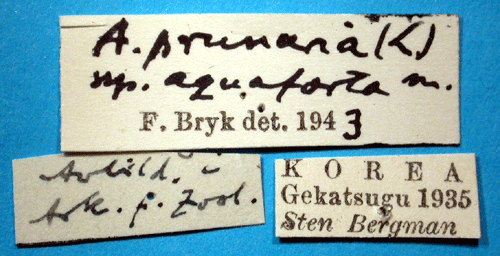 A. prunaria (L)
ssp. aquaforta m.
F. Bryk det. 1943
Avbild. i
Ark. f. Zool.
KOREA
Gekatsugu 1935
Sten Bergman